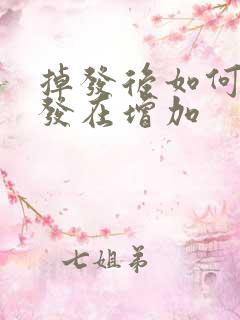 掉發後如何
發在增加
七姐弟